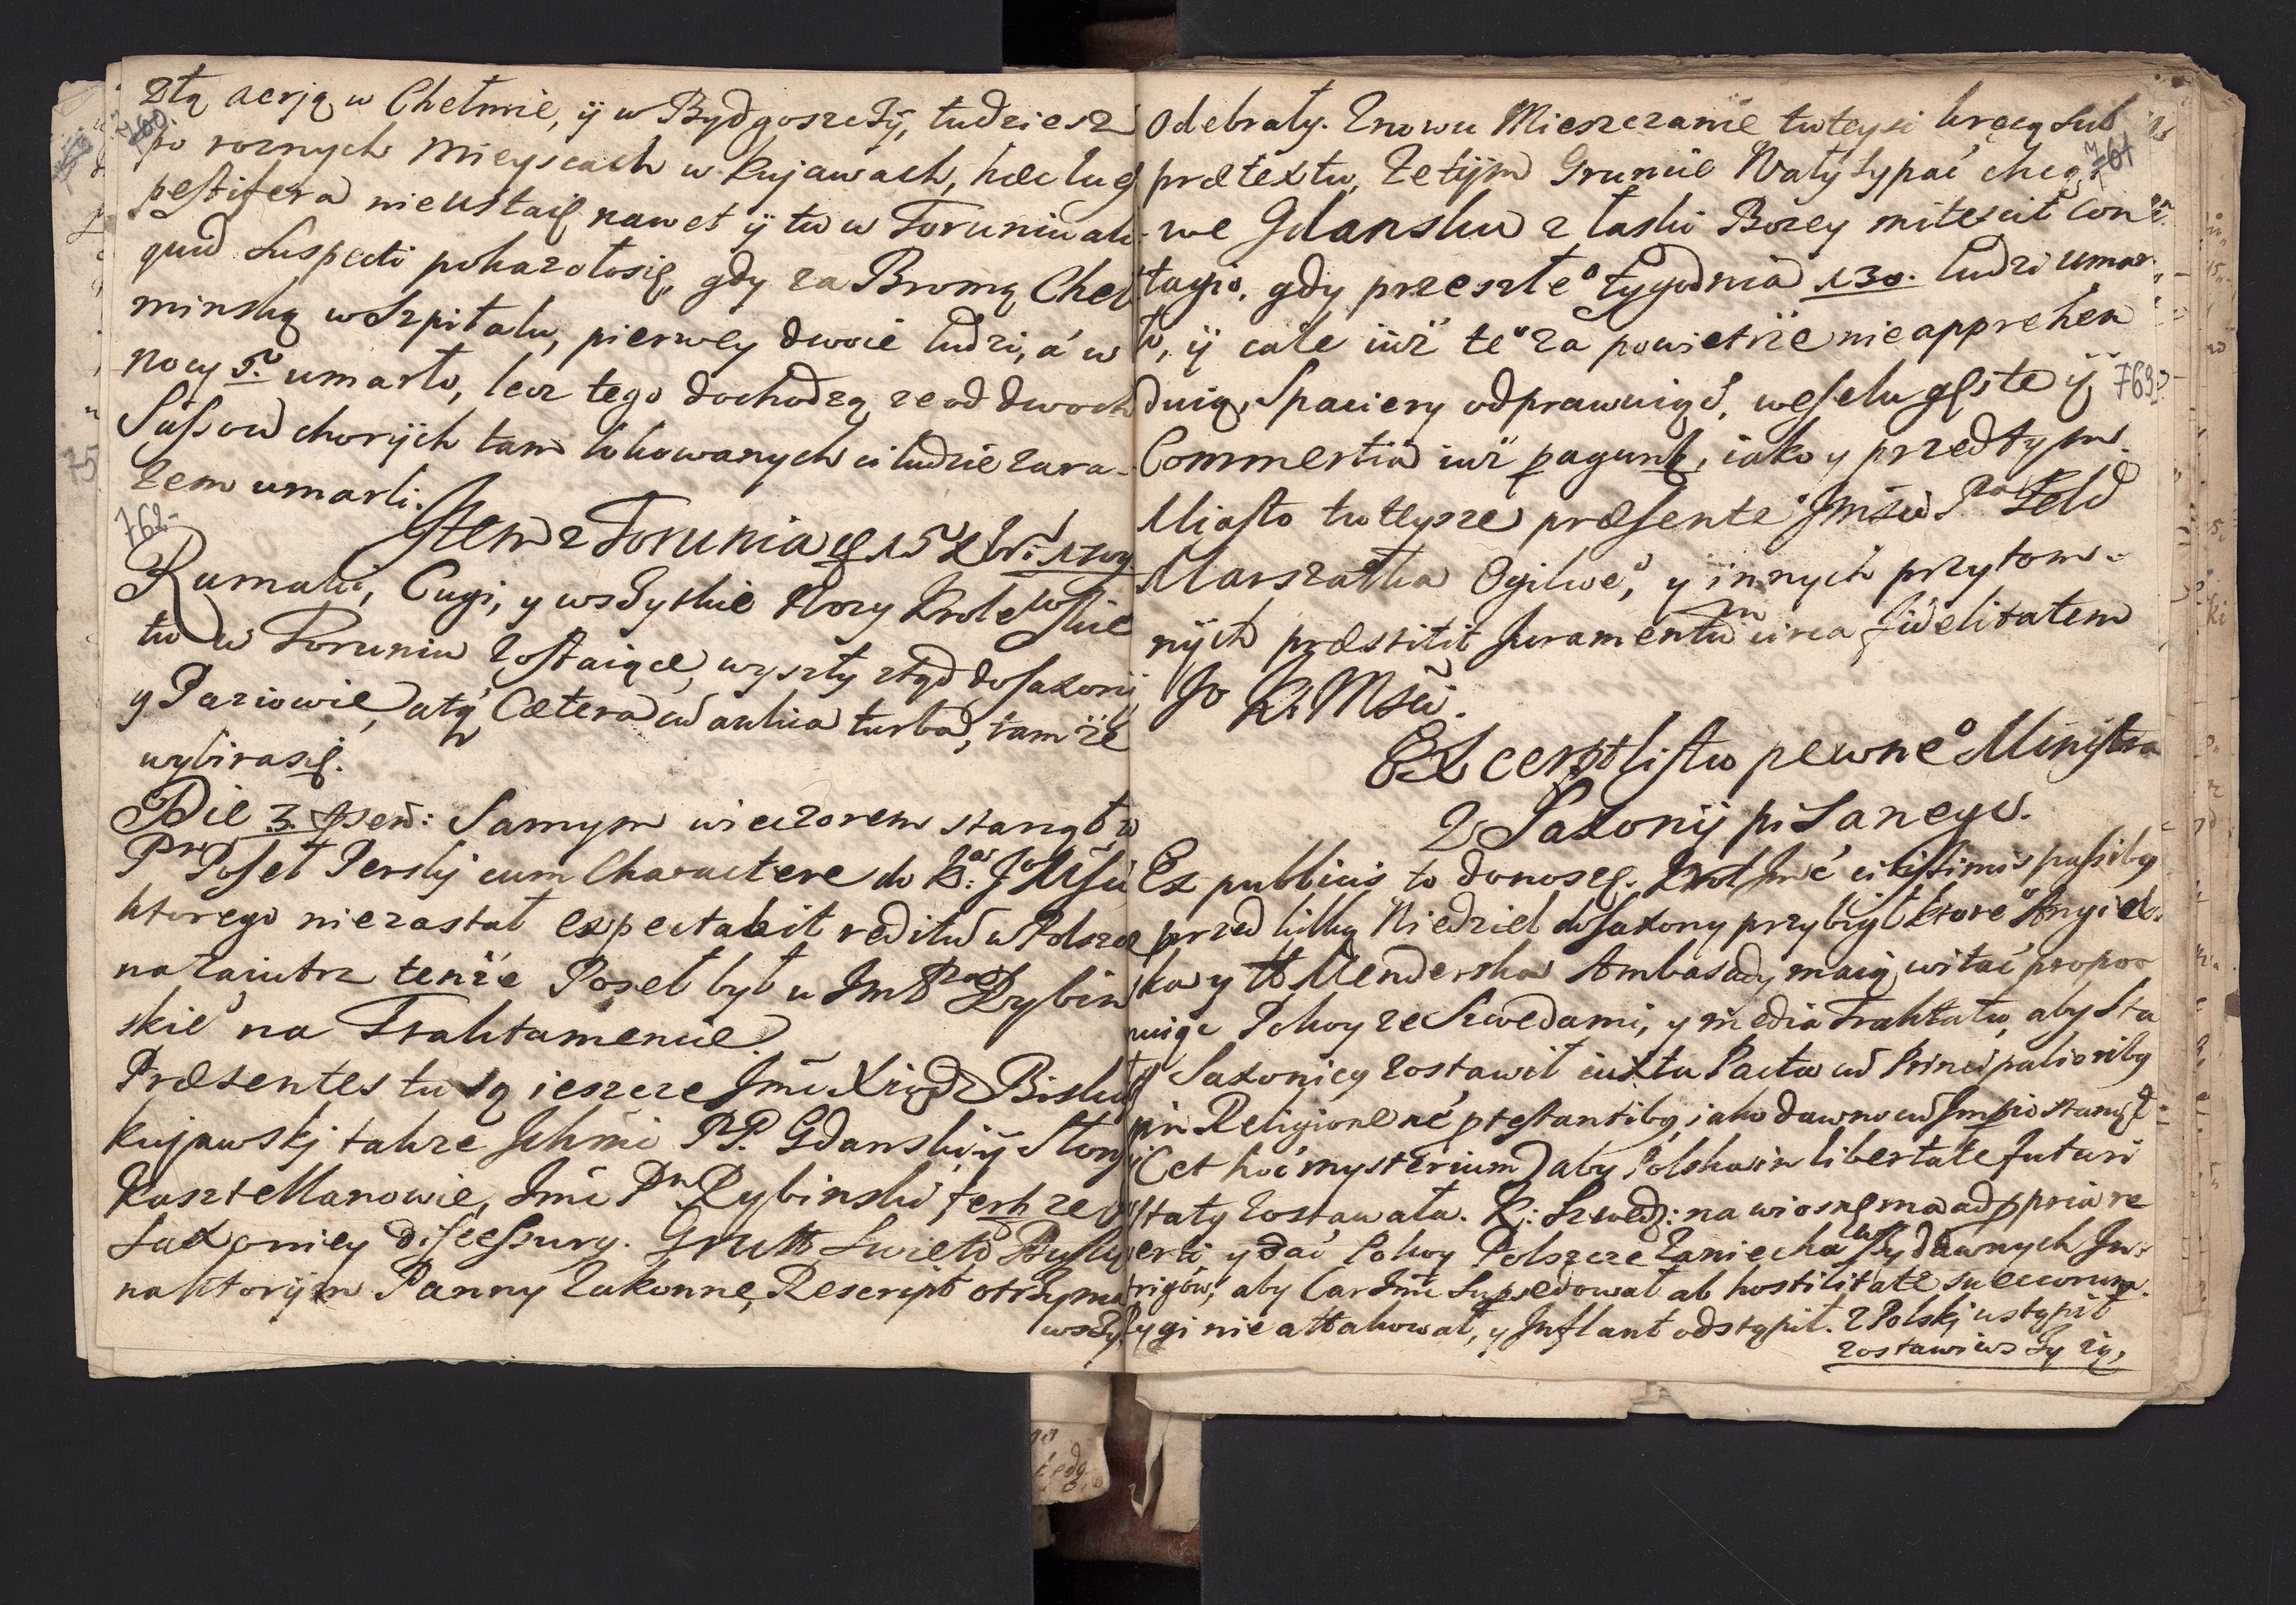 złą aerją w Chełmie, ÿ w Bydgoszczÿ, tudziesz
760.
po roznych mieyscach w Kujawach, hæc lues
pestifera nieustaię nawet ÿ tu w Toruniu ali-
quid suspecti pokazołosię, gdy za Bromą Cheł-
minską w Szpitalu, pierwey dwoie ludzi, á w
nocy 5. umarło, lecz tego dochodzą ze od dwoch
Sassow chorÿch tam lokowanych ci ludzie zara-
zem umarli.
762.
Item z Torunia
Rumaki, Cugi, y wszystkie Wozy Krolewskie
tu w Toruniu zostaiące, wyszły ztąd do Saxonÿ
y Paziowie, atq cætera cu aulica turba, tamże
wybirasię.
Die 3. Samym wieczorem stanął w
Pn Poseł Perskÿ cum Charactere do K. Jo Mści
ktorego niezastał expectabit reditu w Polszce
nazaiutrz tenże Poseł był u Im Pa Rybin
skie na Traktamencie.
Præsentes tu są ieszcze Jmć Xiądz Biskup
Kujawskj takze Ichmć PP. Gdanski ÿ
Kasztellanowie, Jmć Pn Rybinski
Saxoniey discessurq. Grutt Swietø
naktorÿm Panny Zakonne, Rescript otrzyma
wszÿ,
Odebrały. Znowu Mieszczanie tuteysi kręcą sub
761
prætextu, że tÿm Gruncie Wały sypać chcą,
we Gdansku z łaski Bozey mitescit Con
tagio. gdy przeszłe tygodnia 130. ludzi umar
ło, ÿ cale iuż te za powietrze nie apprehen
duią, Spaciery odprawuiąć, wesela gęste ÿ
763.
Commertia iuż pagunt, iako y przedtym.
Miasto tuteysze præsente Jmści Pa Feld
Marszałka Ogilwe, y innych przytom-
nÿch præstitit Juramentu circa fidelitatem
Jo K. Mści.
Excerpt listu pewne Ministra
z Saxonÿ pisanego.
Ex publicis to donoszę. Krol Jmć citissimis passibq
przed kilką Niedziel do Saxony przybył ktore Angiel-
ska y Ollenderska Ambasady maią witać propo
nuiąc Pokoy ze Szwedami, y media Traktatu, aby Sta
ty Saxonicq zostawił iuxta Pacta cu Principalioribq
pri Religione ne ptestantibq, iako dawno cu Impio stanęł
(et hoc mysterium) aby Polska in libertate futuri
staty zostawała. K: Szwedz: na wiosnę ma ad ppria re
verti y dać Pokoy Polszcze zaniechawszy dawnych In-
trigow; aby Car Jmć supsedował ab hostilitate suecorum.
Rygi nie attakował, y Inflant odstąpił. z Polskj ustąpił
zostawiwszy